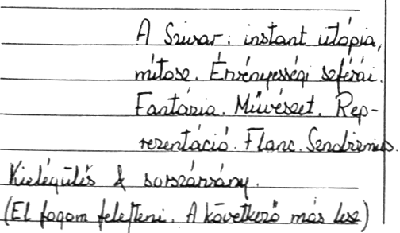 A Szivar: instant utópia,
mítosz. Érvényességi szférái.
Fantázia. Művészet. Rep-
rezentáció. Flanc. Szadizmus.
Kielégülés & sorszárvány.
(El fogom felejteni. A következő más lesz)